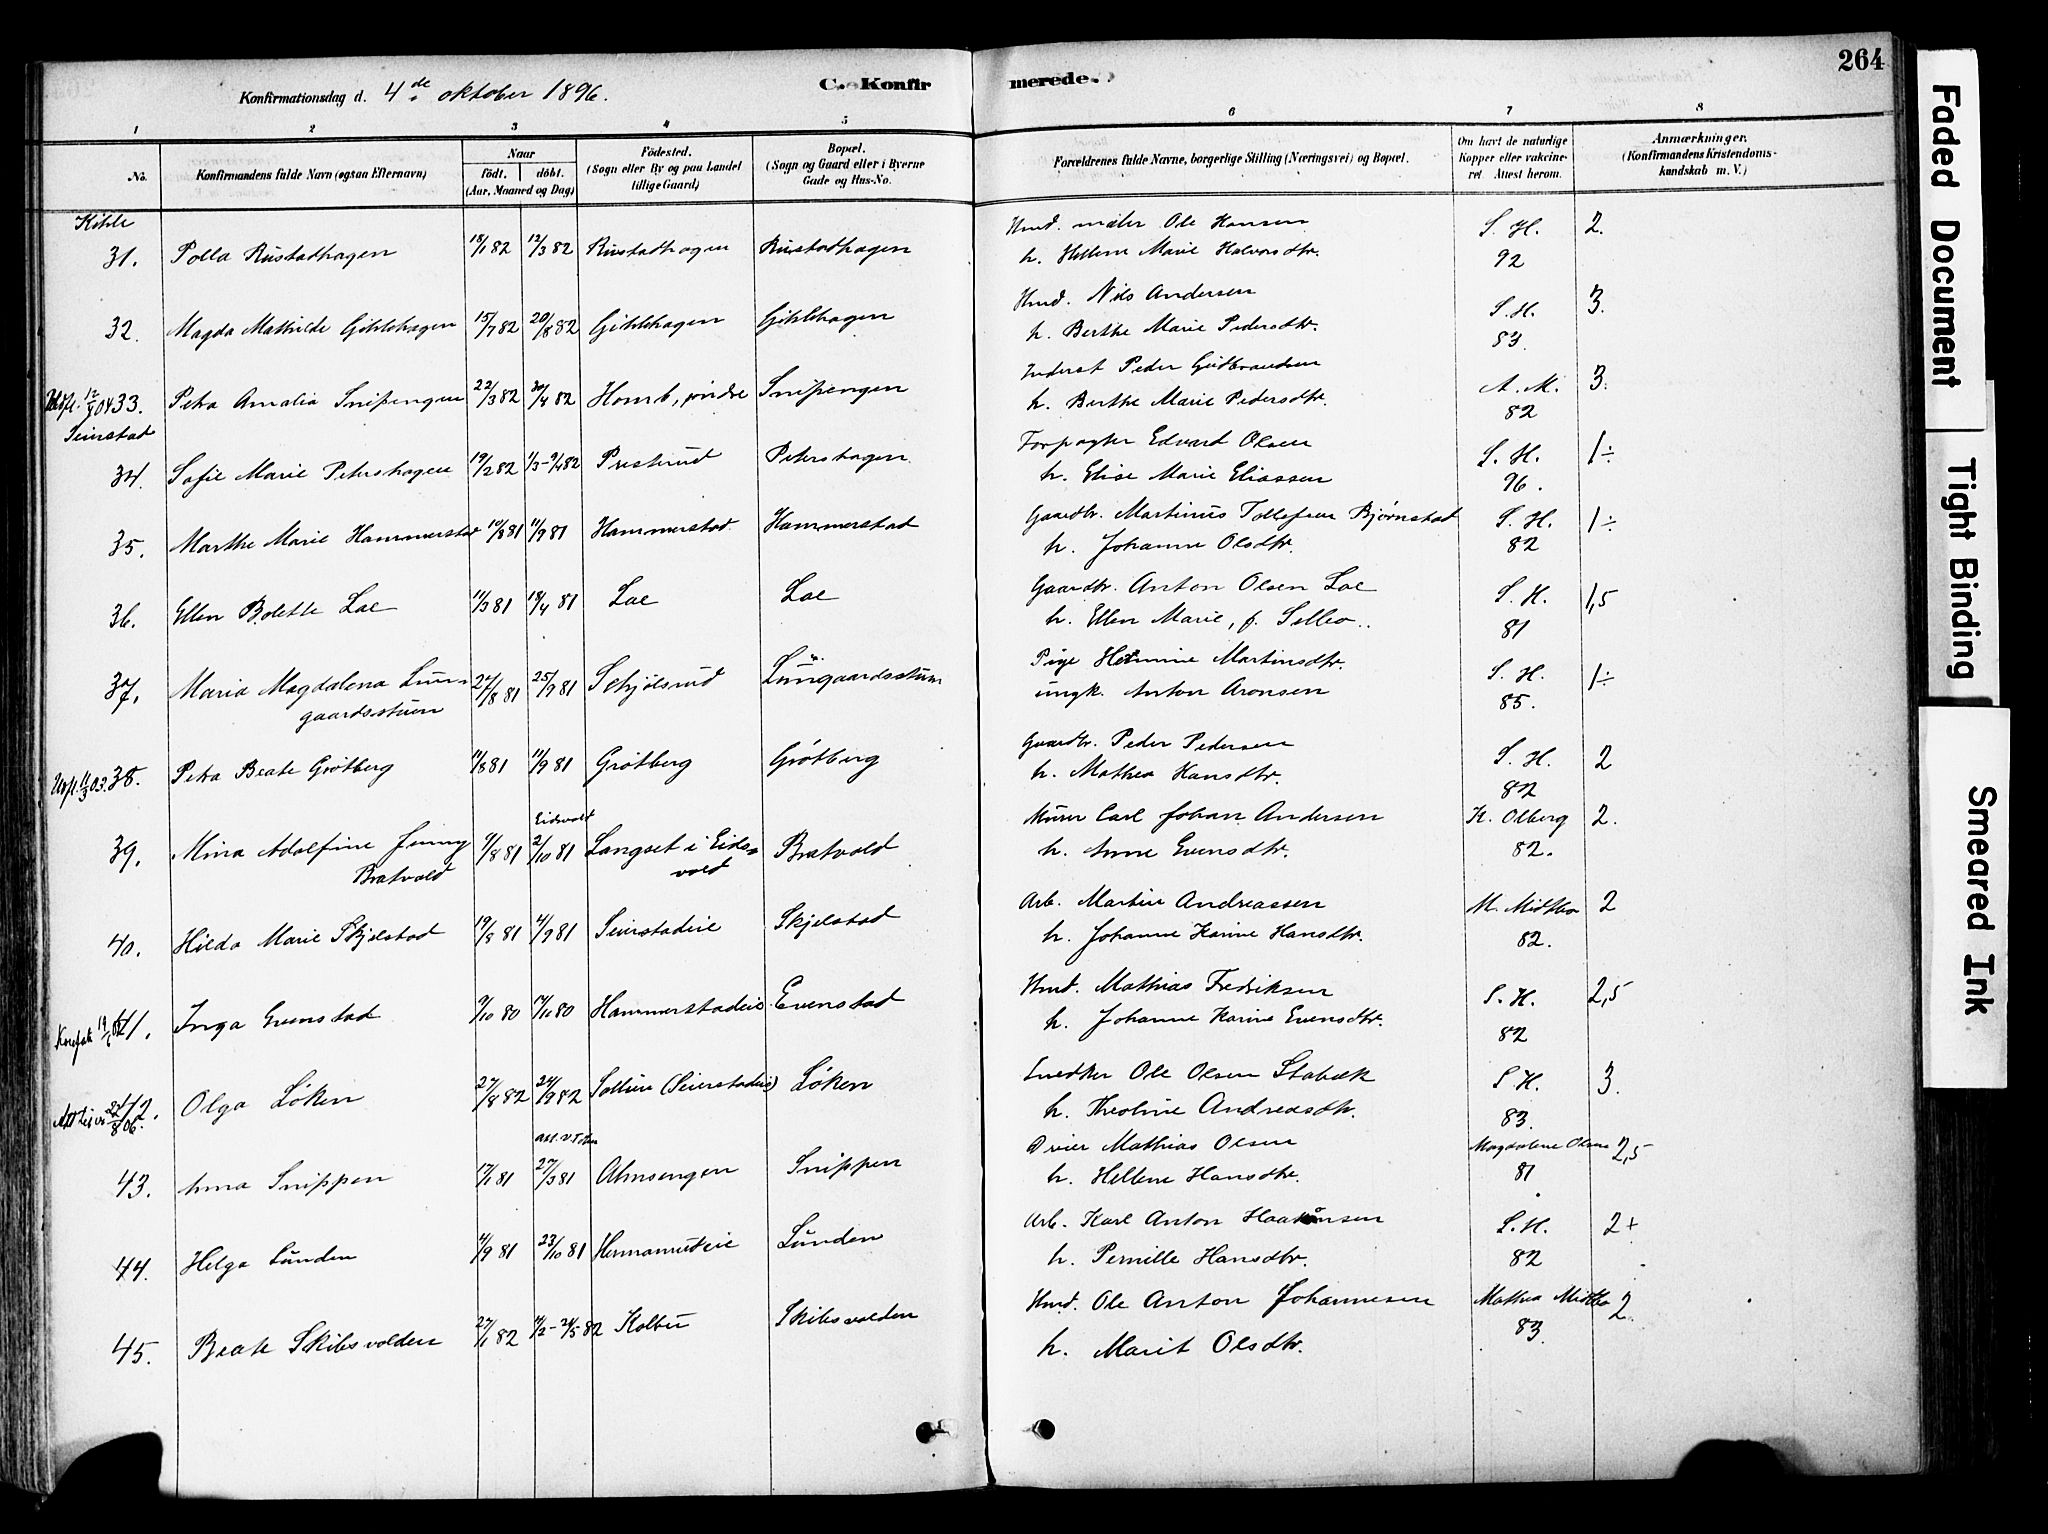 264
Konfirmationsdag d. 4de oktober 1896.
C. Konfirmerede.
1 2 3 4 5 6 7 8
No.
Konfirmandens fulde Navn (ogsaa Efternavn)
Naar
født. døbt.
(Aar, Maaned og Dag)
Födested.
(Sogn eller By og paa Landet
tillige Gaard)
Bopæl.
(Sogn og Gaard eller i Byerne
Gade og Hus-No.
Forældrenes fulde Navne, borgerlige Stilling (Næringsvei) og Bopæl.
Om havt de naturlige
Kopper eller vakcine-
ret. Attest herom.
Anmærkninger.
(Konfirmandens Kristendoms-
kundskab m. V.)
Kihle
31. Polla Rustadhagen 18/1 82 12/3 82 Rustadhagen Rustadhagen Hmd. maler Ole Hansen S. H. 2.
h. Hellene Marie Halvorsdtr. 92
32. Magda Mathilde Gihlehagen 15/7 82 20/8 82 Gihlehagen Gihlehagen Hmd. Nils Andersen S. H. 3.
h. Berthe Marie Pedersdtr. 83.
33. Petra Amalia Snipengen 22/3 82 30/4 82 Homb, søndre Snipengen Inderst Peder Gudbrandsen A. M. 3.
h. Berthe Marie Pedersdtr. 82
Seierstad
34. Sofie Marie Petershagen 19/2 82 1/3-9/4 82 Presterud Petershagen Forpagter Edvard Olsen S. H. 1÷
h. Elise Marie Eliassen 96.
35. Marthe Marie Hammerstad 10/8 81 11/9 81 Hammerstad Hammerstad Gaardbr. Martinus Tollefsen Bjørnstad S. H. 1÷
h. Johanne Olsdtr. 82
36. Ellen Bolette Loe 11/3 81 18/4 81 Loe Loe Gaardbr. Anton Olsen Loe S. H. 1,5
h. Ellen Marie, f. Sillbo.. 81
37. Maria Magdalena Luun-
gaardsstuen 27/8 81 25/9 81 Schjølsrud Luungaardsstuen Pige Hermine Martinsdtr. S. H. 1÷
ungk. Anton Aronsen 85.
Utfl. 11/3 03. 38. Petra Beate Grøtberg 11/8 81 11/9 81 Grøtberg Grøtberg Gaardbr. Peder Pedersen S. H. 2
h. Mathea Hansdtr. 82
39. Mina Adolfine Jenny
Bratvold 9/8 81 Eidsvold 2/10 81 Langset i Eids-
vold Bratvold Murer Carl Johan Andersen K. Olberg 2.
h. Anne Evensdtr. 82.
40. Hilda Marie Skjelstad 19/8 81 4/9 81 Seierstadeie Skjelstad Arb. Martin Andreassen M. Midtbo 2
h. Johanne Karine Hansdtr. 82.
41. Inga Evenstad 9/10 80 17/10 80 Hammerstadeie Evenstad Hmd. Mathias Fredriksen S. H. 2,5
h. Johanne Karine Evensdtr. 82
42. Olga Løken 27/8 82 24/9 82 Sollien (Seierstadeie) Løken Snedker Ole Olsen Stabæk S. H. 3.
h. Theoline Andreasdtr. 83.
43. Anna Snippen 17/1 81 att. V. Toten 27/3 81 Almsengen Snippen Driver Mathias Olsen Magdalene Olsen 2,5
h. Hellene Hansdtr. 81
44. Helga Lunden 4/9 81 23/10 81 Hermanrudeie Lunden Arb. Karl Anton Haakonsen S. H. 2+
h. Pernille Hansdtr. 82
45. Beate Skibsvolden 27/1 82 14/2-24/5 82 Kolbu Skibsvolden Hmd. Ole Anton Johannesen Mathea Midtbo 2.
h. Marit Olsdtr. 83.
Faded Document
Tight Binding
Smeared Ink